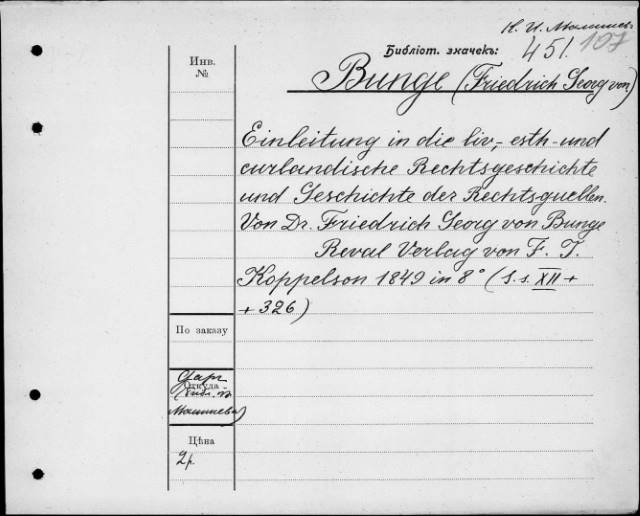 К. И. Малышев.
Библіот. значекъ: 451. 107
Инв.
№
Bunge (Friedrich Georg von)
Einleitung in die liv-, esth- und
curlandische Rechtsgeschichte
und Geschichte der Rechtsquellen.
Von Dr. Friedrich Georg von Bunge
Reval Verlag von F. J.
Koppelson 1849 in 8° (S. s. XII +
+ 326)
По заказу
Откуда
Даръ
(библ.
Малышева)
Цѣна
2р.